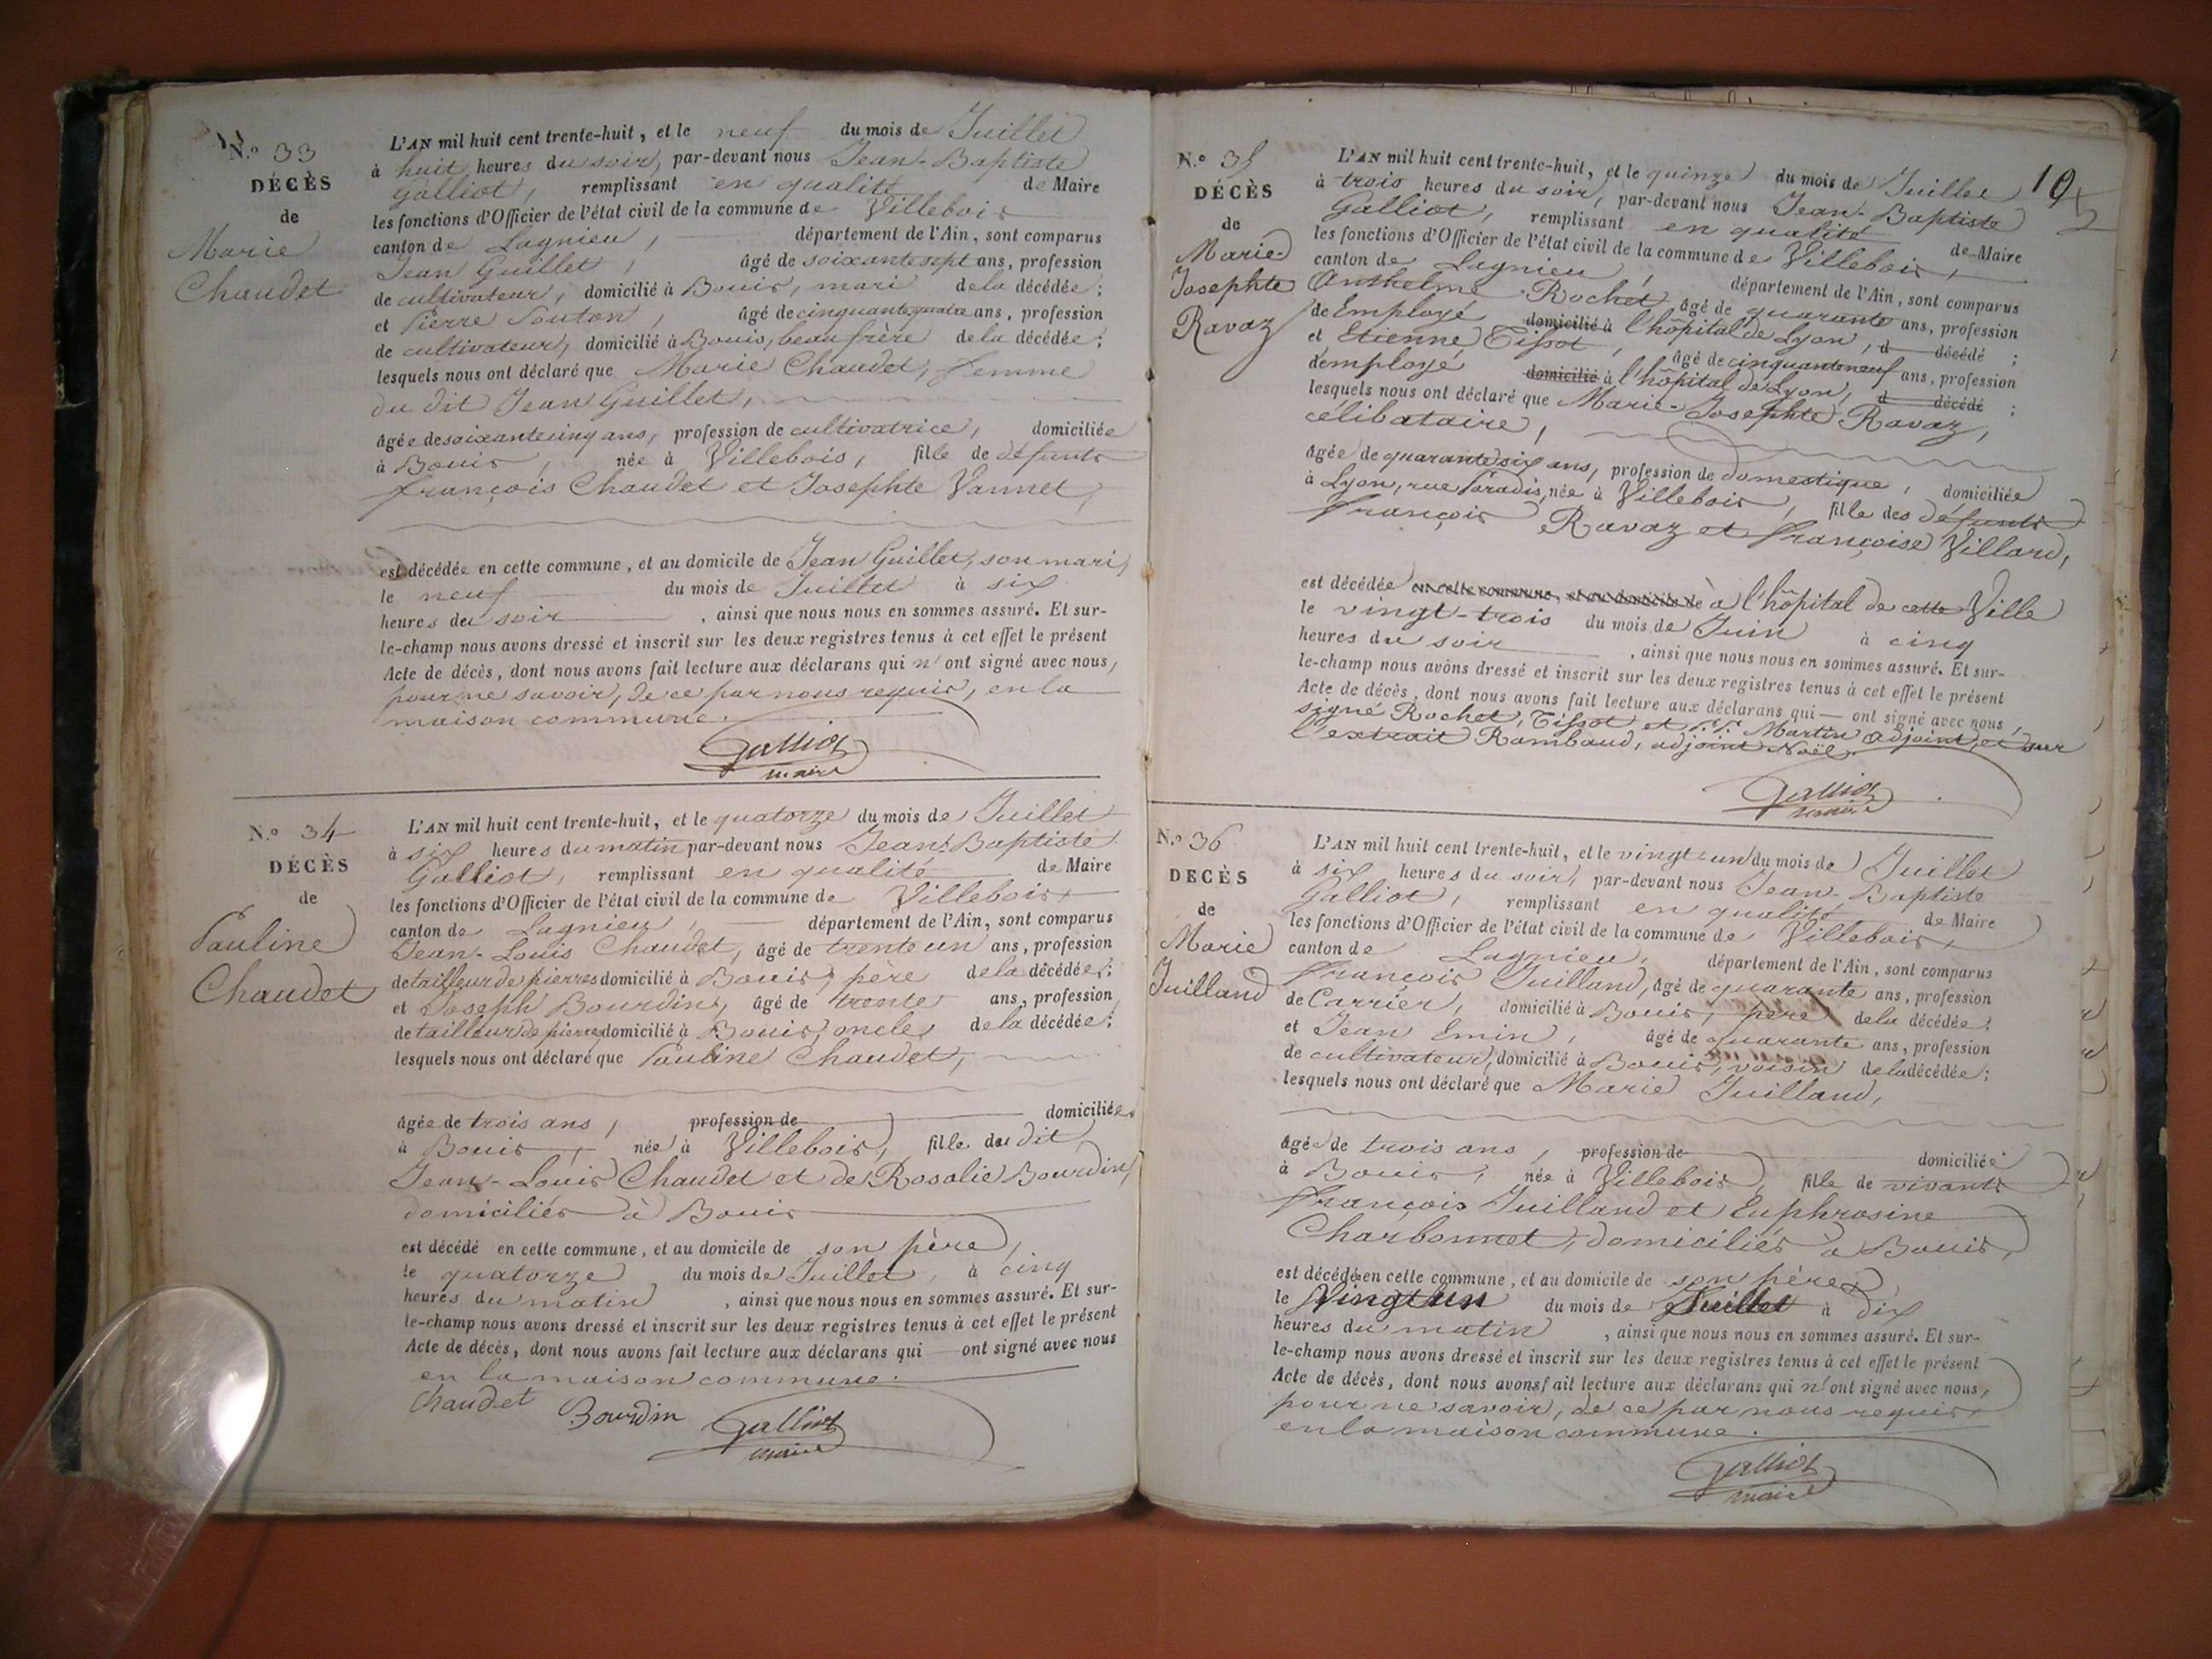 N.º 33
DÉCÈS
de
Marie
Chaudet
L'AN mil huit cent trente-huit, et le neuf du mois de Juillet
à huit heures du soir, par-devant nous Jean-Baptiste
Galliot, remplissant en qualité de Maire
les fonctions d'Officier de l'état civil de la commune de Villebois
canton de Lagnieu, département de l'Ain, sont comparus
Jean Guillet, âgé de soixante sept ans, profession
de cultivateur, domicilié à Bouis, mari de la décédée;
et Pierre Souton, âgé de cinquante quatre ans, profession
de cultivateur, domicilié à Bouis, beau frère de la décédée;
lesquels nous ont déclaré que Marie Chaudet, femme
du dit Jean Guillet,
âgée de soixante cinq ans, profession de cultivatrice, domiciliée
à Bouis, née à Villebois, fille de défunts
François Chaudet et Josephte Vannet,
est décédée en cette commune, et au domicile de Jean Guillet, son mari,
le neuf du mois de Juillet à six
heures du soir, ainsi que nous nous en sommes assuré. Et sur-
le-champ nous avons dressé et inscrit sur les deux registres tenus à cet effet le présent
Acte de décès, dont nous avons fait lecture aux déclarans qui n'ont signé avec nous,
pour ne savoir, de ce par nous requis, en la
maison commune.
Galliot
maire
N.º 34
DÉCÈS
de
Pauline
Chaudet
L'AN mil huit cent trente-huit, et le quatorze du mois de Juillet
à six heures du matin par-devant nous Jean-Baptiste
Galliot, remplissant en qualité de Maire
les fonctions d'Officier de l'état civil de la commune de Villebois
canton de Lagnieu, département de l'Ain, sont comparus
Jean-Louis Chaudet, âgé de trente un ans, profession
de tailleur de pierres domicilié à Bouis, père de la décédée;
et Joseph Bourdin, âgé de trente ans, profession
de tailleur de pierres domicilié à Bouis, oncle de la décédée;
lesquels nous ont déclaré que Pauline Chaudet,
âgée de trois ans, profession de domiciliée
à Bouis, née à Villebois, fille du dit
Jean-Louis Chaudet et de Rosalie Bourdin,
domiciliés à Bouis
est décédé en cette commune, et au domicile de son père,
le quatorze du mois de Juillet, à cinq
heures du matin, ainsi que nous nous en sommes assuré. Et sur-
le-champ nous avons dressé et inscrit sur les deux registres tenus à cet effet le présent
Acte de décès, dont nous avons fait lecture aux déclarans qui ont signé avec nous
en la maison commune.
Chaudet Bourdin Galliot
maire
19
N.º 35
DÉCÈS
de
Marie-
Josephte
Ravaz
L'AN mil huit cent trente-huit, et le quinze du mois de Juillet
à trois heures du soir, par-devant nous Jean-Baptiste
Galliot, remplissant en qualité de Maire
les fonctions d'Officier de l'état civil de la commune de Villebois,
canton de Lagnieu, département de l'Ain, sont comparus
Anthelme Rochet âgé de quarante ans, profession
de Employé domicilié à l'hôpital de Lyon, d décédé;
et Etienne Tissot, âgé de cinquante neuf ans, profession
d'employé domicilié à l'hôpital de Lyon, d décédé;
lesquels nous ont déclaré que Marie-Josephte Ravaz,
célibataire,
âgée de quarante six ans, profession de domestique, domiciliée
à Lyon, rue Paradis, née à Villebois, fille des défunts
François Ravaz et Françoise Villard,
est décédée en cette commune, et au domicile de à l'hôpital de cette Ville
le vingt-trois du mois de Juin à cinq
heures du soir, ainsi que nous nous en sommes assuré. Et sur-
le-champ nous avons dressé et inscrit sur les deux registres tenus à cet effet le présent
Acte de décès, dont nous avons fait lecture aux déclarans qui ont signé avec nous,
signé Rochet, Tissot et Martin adjoint, et sur
l'extrait Rambaud, adjoint Noël.
Galliot
maire
N.º 36
DÉCÈS
de
Marie
Juilland
L'AN mil huit cent trente-huit, et le vingt un du mois de Juillet
à six heures du soir, par-devant nous Jean-Baptiste
Galliot, remplissant en qualité de Maire
les fonctions d'Officier de l'état civil de la commune de Villebois,
canton de Lagnieu, département de l'Ain, sont comparus
François Juilland, âgé de quarante ans, profession
de Carrier, domicilié à Bouis, père de la décédée;
et Jean Emin, âgé de quarante ans, profession
de cultivateur, domicilié à Bouis, voisin de la décédée;
lesquels nous ont déclaré que Marie Juilland,
âgé de trois ans, profession de domiciliée
à Bouis, née à Villebois, fille de vivants
François Juilland et Euphrosine
Charbonnet, domiciliés à Bouis,
est décédée en cette commune, et au domicile de son père,
le Vingt un du mois de Juillet à dix
heures du matin, ainsi que nous nous en sommes assuré. Et sur-
le-champ nous avons dressé et inscrit sur les deux registres tenus à cet effet le présent
Acte de décès, dont nous avons fait lecture aux déclarans qui n'ont signé avec nous,
pour ne savoir, de ce par nous requis
en la maison commune.
Galliot
maire